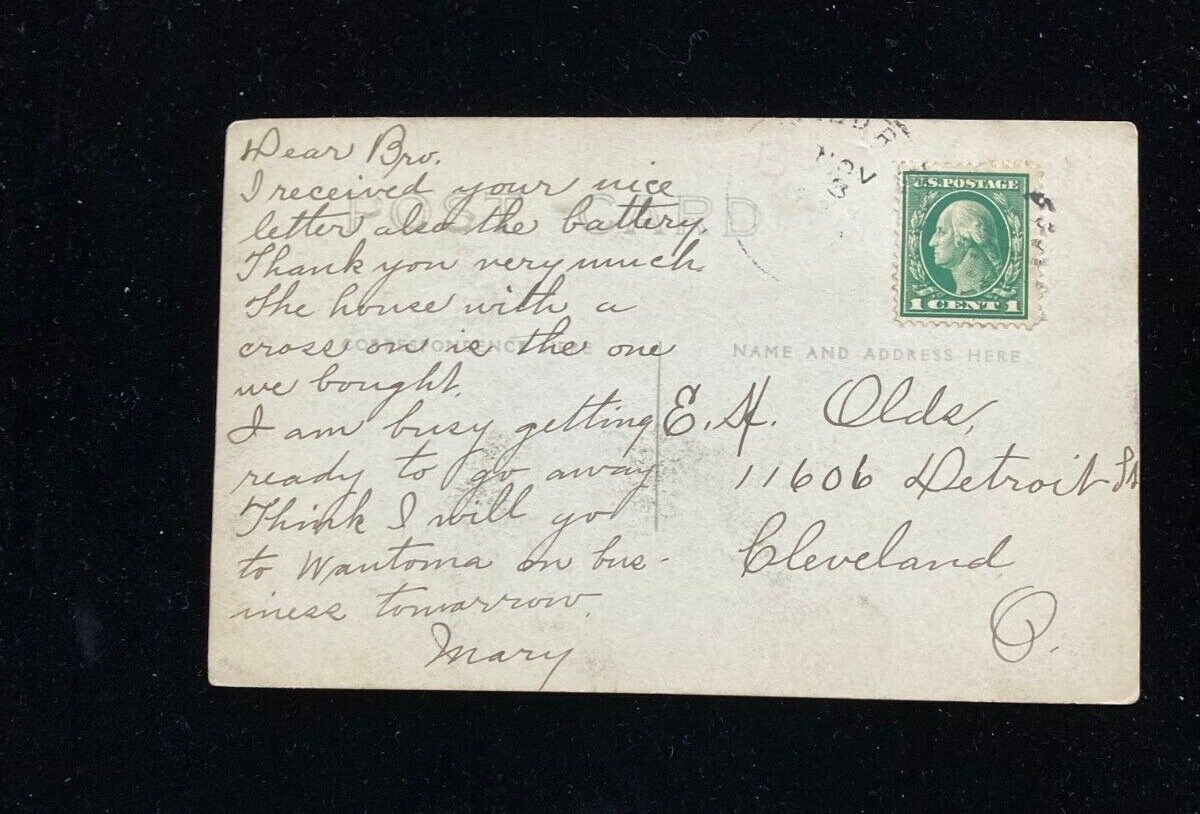 Dear Bro.
I received your nice
letter also the battery.
Thank you very much
The house with a
cross on is the one
we bought.
I am busy getting
ready to go away
Think I will go
to Wautoma on bus-
iness tomorrow.
Mary
POST CARD
CORRESPONDENCE HERE
NOV
U.S. POSTAGE
1 CENT 1
NAME AND ADDRESS HERE
E. H. Olds,
11606 Detroit St
Cleveland
O.